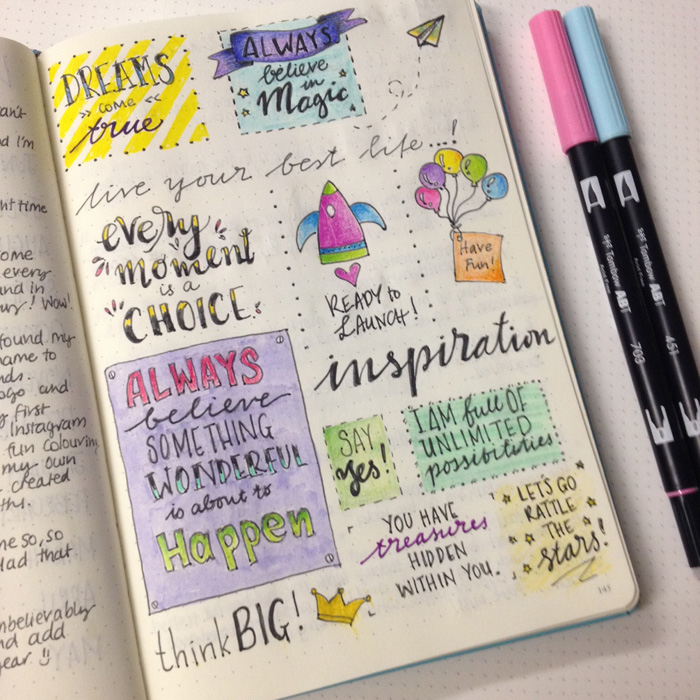 can't
and I'm
ght time
ome
every
and in
ury! Wow!
found my
name to
nds.
ogo and
y first
Instagram
fun colouring
my own
created
this.
me so, so
glad that
nbelievably
nd add
year
DREAMS
>> come <<
true
ALWAYS
believe
in
Magic
live your best life...!
every
moment
is a
CHOICE.
READY to
LAUNCH!
Have
Fun!
inspiration
ALWAYS
believe
SOMETHING
WONDERFUL
is about to
Happen
SAY
yes!
I AM full OF
UNLIMITED
possibilities
YOU HAVE
treasures
HIDDEN
WITHIN YOU.
LET'S GO
RATTLE
THE
stars!
think BIG!
Tombow ABT
703
Tombow ABT
451